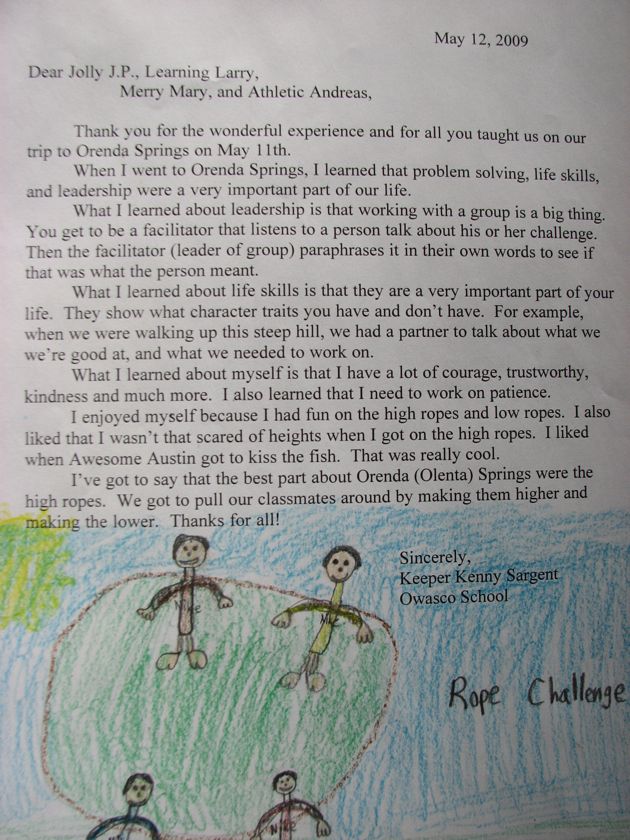 May 12, 2009
Dear Jolly J.P., Learning Larry,
Merry Mary, and Athletic Andreas,
Thank you for the wonderful experience and for all you taught us on our
trip to Orenda Springs on May 11th.
When I went to Orenda Springs, I learned that problem solving, life skills,
and leadership were a very important part of our life.
What I learned about leadership is that working with a group is a big thing.
You get to be a facilitator that listens to a person talk about his or her challenge.
Then the facilitator (leader of group) paraphrases it in their own words to see if
that was what the person meant.
What I learned about life skills is that they are a very important part of your
life. They show what character traits you have and don't have. For example,
when we were walking up this steep hill, we had a partner to talk about what we
we're good at, and what we needed to work on.
What I learned about myself is that I have a lot of courage, trustworthy,
kindness and much more. I also learned that I need to work on patience.
I enjoyed myself because I had fun on the high ropes and low ropes. I also
liked that I wasn't that scared of heights when I got on the high ropes. I liked
when Awesome Austin got to kiss the fish. That was really cool.
I've got to say that the best part about Orenda (Olenta) Springs were the
high ropes. We got to pull our classmates around by making them higher and
making the lower. Thanks for all!
Sincerely,
Keeper Kenny Sargent
Owasco School
Nike
Nike
Rope Challenge
Nike